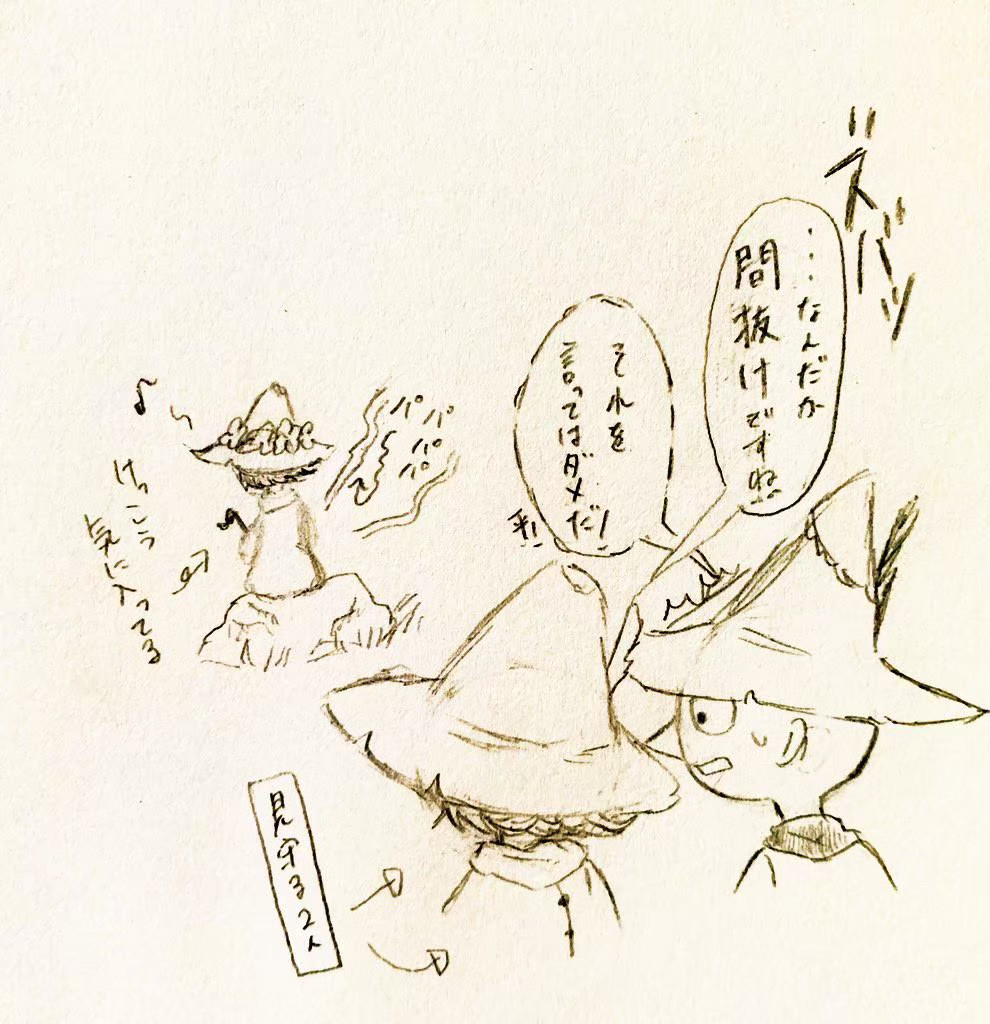 ズバッ
・・・なんだか
間抜けですね
それを
言ってはダメだ!
パパ
パパ
♪
けっこう
気に入ってる
見守る2人